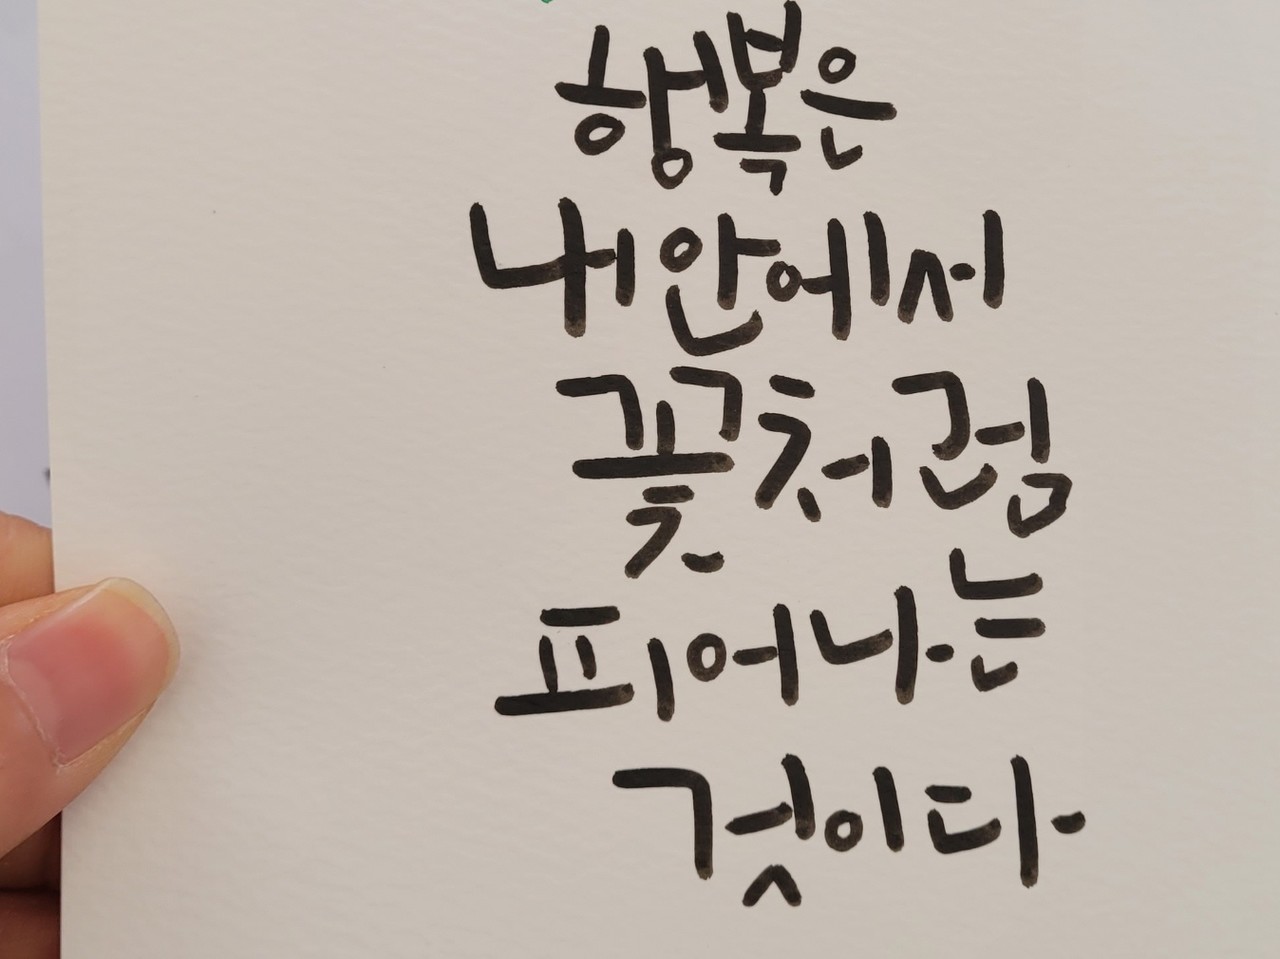 행복은
내 안에서
꽃처럼
피어나는
것이다